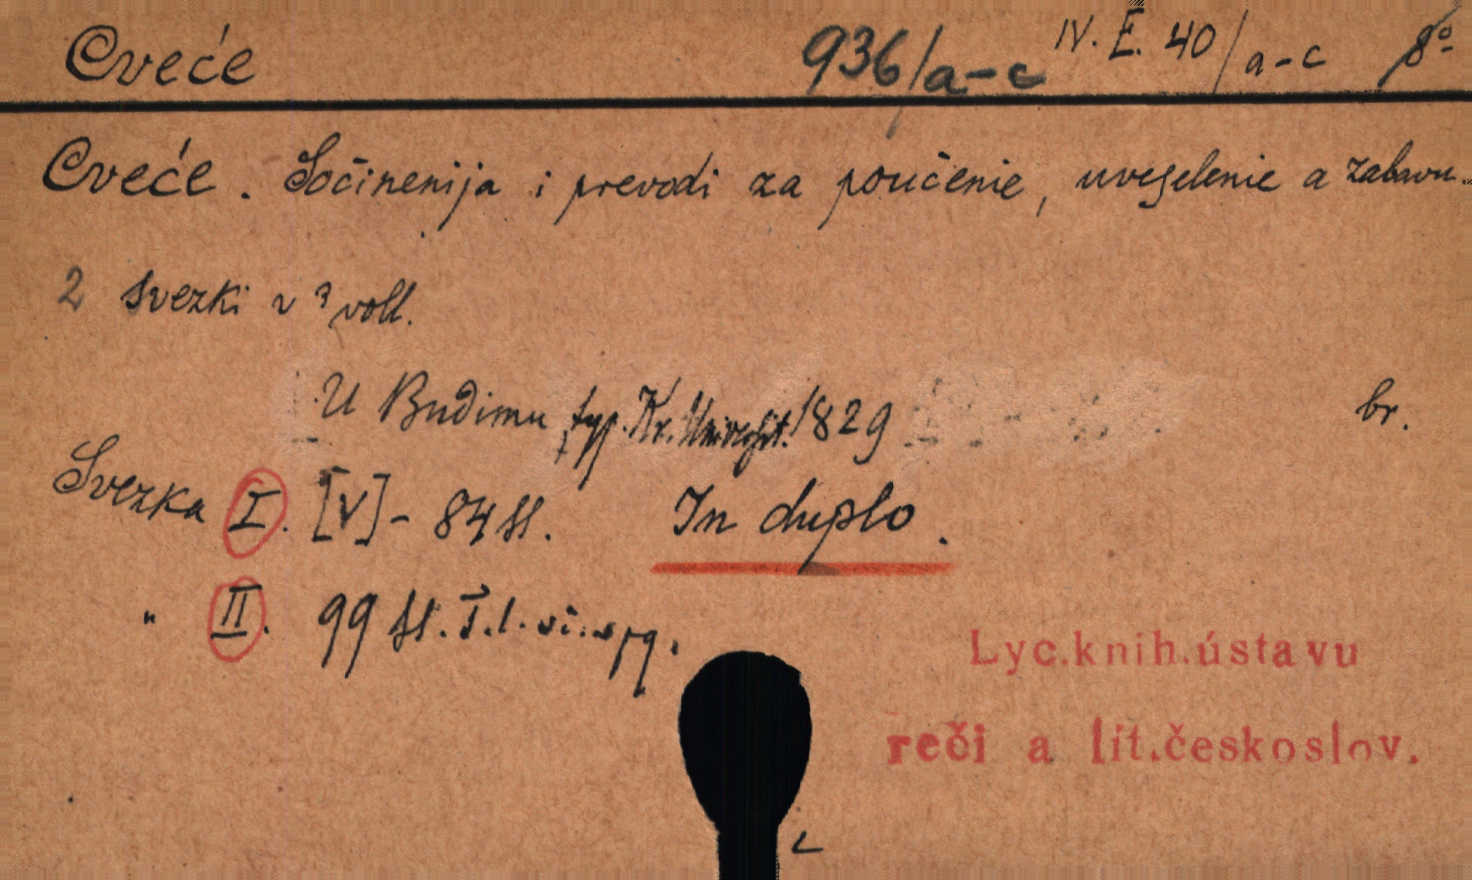 Cveće 936/a-c IV. E. 40/a-c 8º
Cveće. Sočinenija i prevodi za poučenie, uveselenie a zabavu.
2 svezki v 3 voll.
U Budimu typ. Kr. Universit. 1829 br.
Svezka I. [V] - 84 ss. In duplo.
" II. 99 ss.
Lyc.knih.ústavu
reči a lit.českoslov.